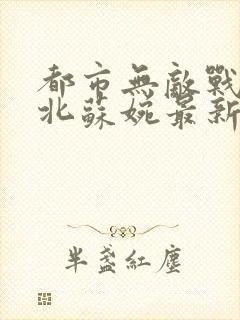 都市無敵戰
北蘇婉最新
半盞紅塵